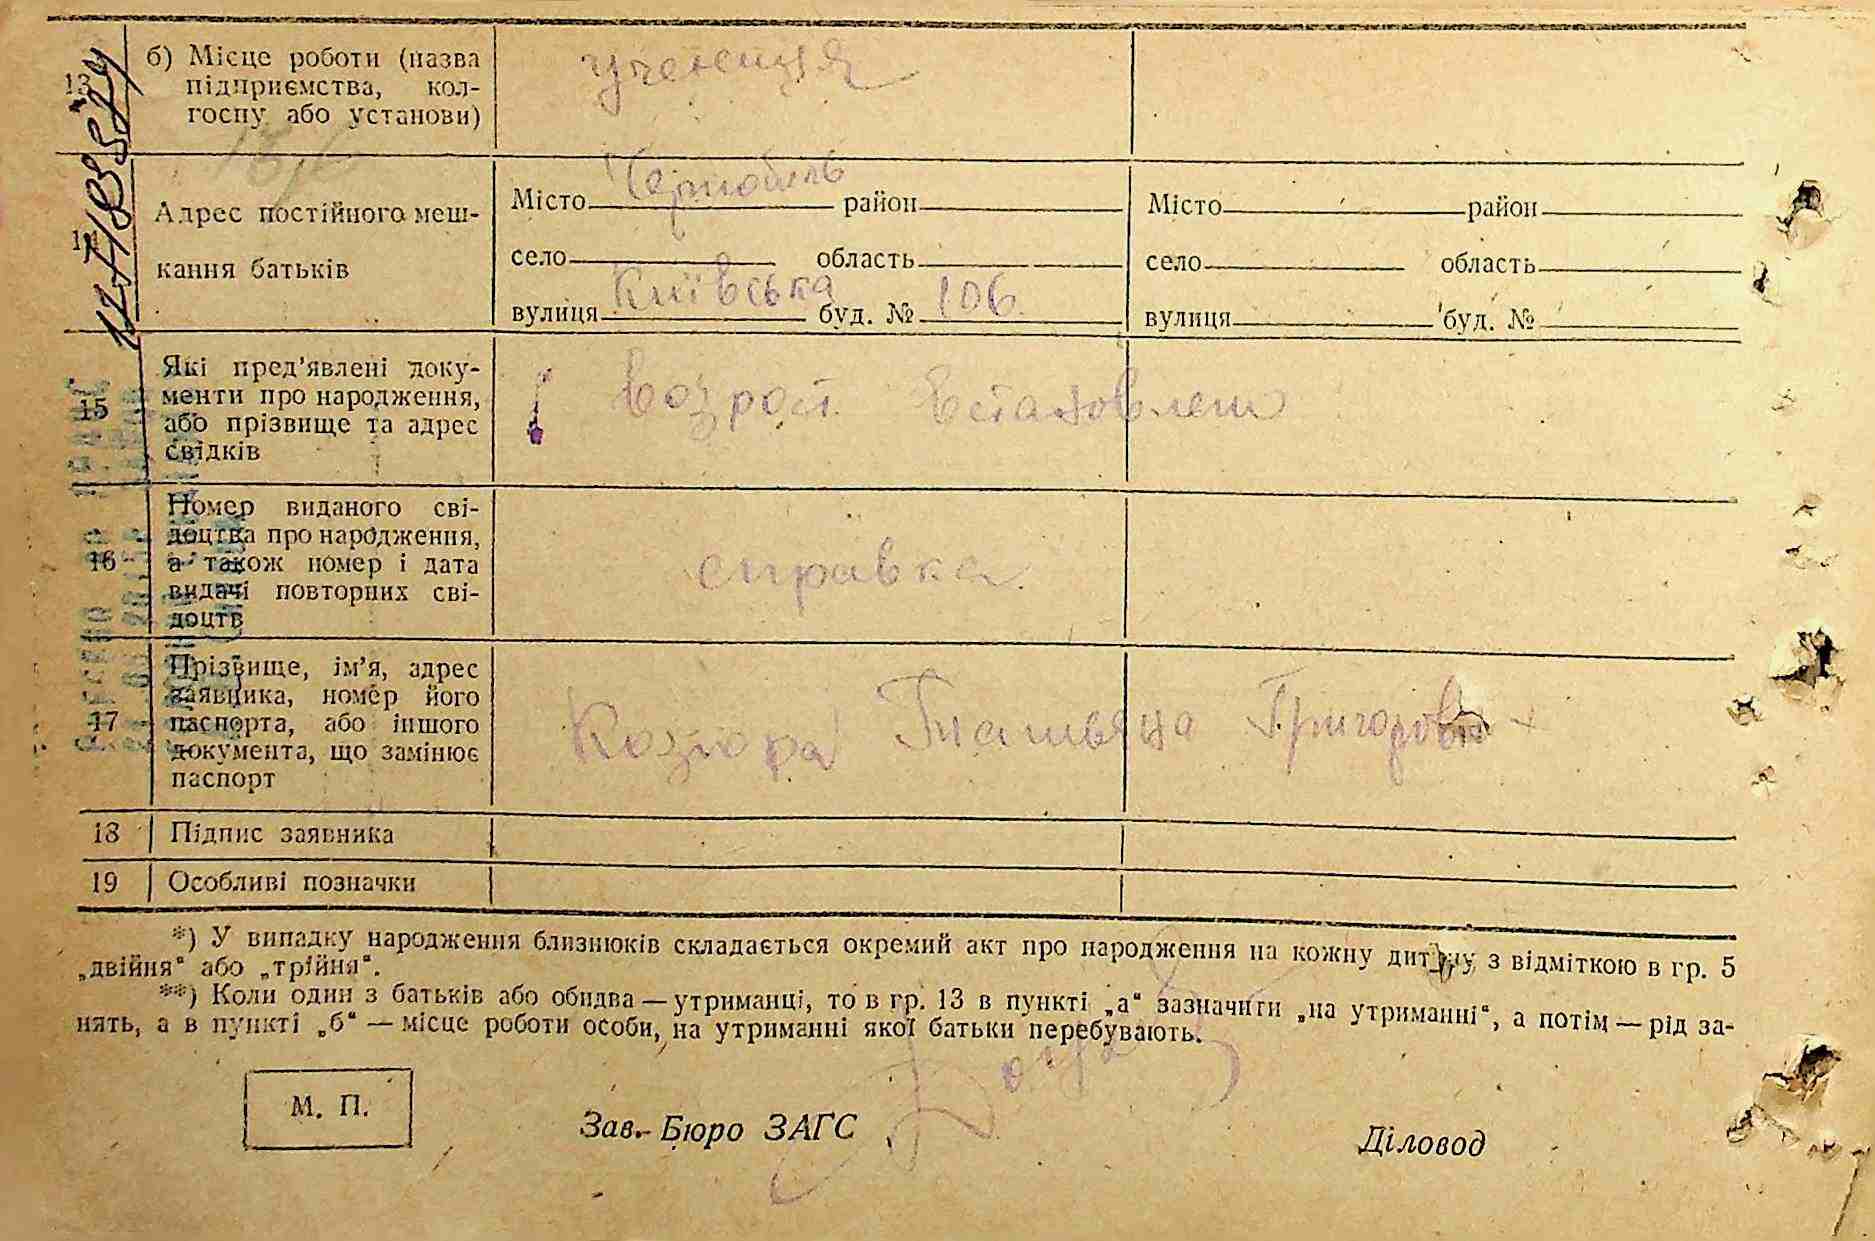 13
б) Місце роботи (назва
підприємства, кол-
госпу або установи)
учениця
14
Адрес постійного меш-
кання батьків
Місто Чернобиль район
село область
вулиця Київська буд. № 106
Місто район
село область
вулиця буд. №
15
Які пред'явлені доку-
менти про народження,
або прізвище та адрес
свідків
возрост встановлен
16
Номер виданого сві-
доцтва про народження,
а також номер і дата
видачі повторних сві-
доцтв
справка
17
Прізвище, ім'я, адрес
заявника, номер його
паспорта, або іншого
документа, що замінює
паспорт
Козюра Татьяна Григоровн
18 Підпис заявника
19 Особливі позначки
*) У випадку народження близнюків складається окремий акт про народження на кожну дитину з відміткою в гр. 5
„двійня" або „трійня".
**) Коли один з батьків або обидва — утриманці, то в гр. 13 в пункті „а" зазначити „на утриманні", а потім — рід за-
нять, а в пункті „б" — місце роботи особи, на утриманні якої батьки перебувають.
М. П.
Зав. Бюро ЗАГС
Діловод